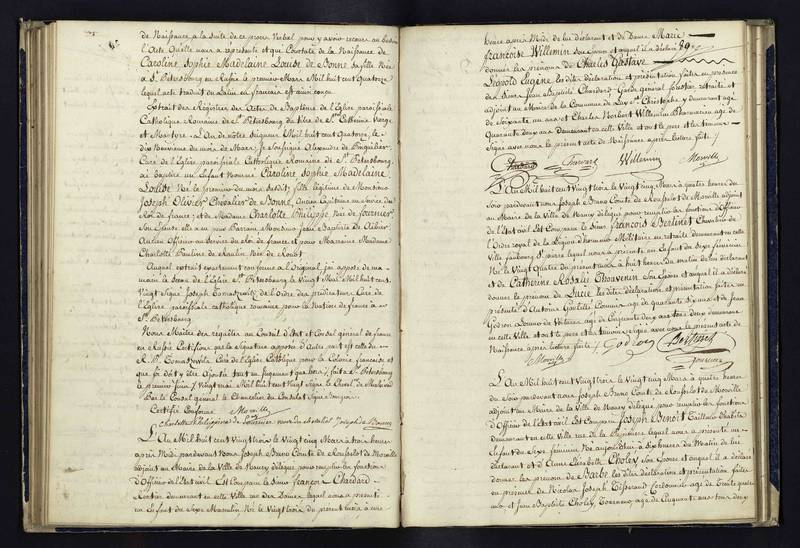 de Naissance, à la suite de ce procès Verbal pour y avoir recours au besoin
l'Acte qu'elle nous a représenté et qui Constate de la Naissance de
Caroline Sophie Madelaine Louise de Bonne, sa fille Née
à St. Petersbourg en Russie le premier Mars Mil huit cent Quatorze
lequel acte traduit du Latin en français est ainsi conçu
Extrait des Registres des Actes de Baptême de l'Eglise paroissiale
Catholique Romaine de St. Petersbourg du titre de Ste. Catherine Vierge
et Martyre. L'An de nôtre Seigneur Mil huit cent Quatorze, le
dix Neuvième du mois de Mars, Je Soussigné Alexandre de
Curé de l'Eglise paroissiale Catholique Romaine de St. Petersbourg
ai baptisé un Enfant Nommé Caroline Sophie Madelaine
Louise Née le premier du mois susdit, fille légitime de Monsieur
Joseph Olivier Chevalier de Bonne, Ancien Capitaine au Service du
Roi de france, et de Madame Charlotte Philippe Née de fournier
Son Epouse elle a eu pour Parrain Monsieur Jean Baptiste de
Ancien Officier au Service du Roi de france et pour Marraine Madame
Charlotte Pauline de Née de
Auquel extrait exactement conforme à l'Original, j'ai apposé de ma
main le Sceau de l'Eglise. St. Petersbourg le Vingt Mai Mil huit cent
Vingt Signé Joseph de l'Ordre des prédicateurs Curé de
l'Eglise paroissiale catholique romaine pour la Nation de france à
St. Petersbourg
Nous Maître des requêtes au Conseil d'Etat et Consul général de france
en Russie Certifions que la Signature apposée d'autre part est celle du
R. P. Curé de l'Eglise Catholique pour la Colonie française et
que foi doit y être Ajoutée tant en Jugement que hors, fait à St. Petersbourg
le premier Juin / Vingt mai Mil huit cent Vingt Signé le Cheval. de
Par le Consul général le Chancelier du Consulat Signé
Certifié Conforme Morville
Charlotte Philippine de fournier
L'An Mil huit cent Vingt trois le Vingt cinq Mars à trois heures
après Midi, pardevant nous Joseph Bruno Comte de Rousselot de Morville
adjoint au Maire de la Ville de Nancy délégué pour remplir les fonctions
d'Officier de l'Etat civil Est Comparu le Sieur françois Chardard
Rentier demeurant en cette Ville rue des Dames lequel nous a présenté
un Enfant du Sexe Masculin Né le Vingt trois du présent mois à onze
heures après Midi de lui déclarant et de Dame Marie
françoise Willemin son Epouse et auquel il a déclaré 89
donner les prénoms de Charles Gustave
Léopold Eugène les dites déclaration et présentation faites en présence
des Sieurs Jean Baptiste Chardard Garde général forestier retraité et
adjoint au Maire de la Commune de Luz St. Christophe y demeurant âgé
de Soixante un ans et Charles Norbert Willemin Pharmacien âgé de
Quarante deux ans Demeurant en cette Ville et ont le père et les témoins
Signé avec nous le présent acte de Naissance après lecture faite
Chardard Willemin Morville
L'An Mil huit cent Vingt trois, le Vingt cinq Mars à quatre heures du
Soir pardevant nous Joseph Bruno Comte de Rousselot de Morville adjoint
au Maire de la Ville de Nancy délégué pour remplir les fonctions d'Officier
de l'Etat civil Est Comparu le Sieur françois Bertinet Chevalier de
l'Ordre royal de la Légion d'honneur Militaire en retraite demeurant en cette
Ville faubourg St. pierre lequel nous a présenté un Enfant du Sexe féminin
Né le Vingt Quatre du présent mois à huit heures du matin de lui déclarant
et de Catherine Rosalie Thouvenin son Epouse et auquel il a déclaré
donner le prénom de Lucie les dites déclaration et présentation faites en
présence d'Antoine Commis âgé de quarante six ans et de Jean
Godron Loueur de Voitures âgé de Cinquante deux ans tous deux demeurant
en cette Ville et ont le père et les témoins Signé avec nous le présent acte de
Naissance après lecture faite. / Godron Bertinet
Morville
L'An Mil huit cent Vingt trois le Vingt cinq Mars à quatre heures
du Soir pardevant nous Joseph Bruno Comte de Rousselot de Morville
adjoint au Maire de la Ville de Nancy délégué pour remplir les fonctions
d'Officier de l'Etat civil Est Comparu Joseph Benoît
demeurant en cette Ville rue de la Pépinière lequel nous a présenté un
Enfant du Sexe féminin Né aujourd'hui à Six heures du Matin de lui
déclarant et d'Anne Elisabeth Choley Son Epouse et auquel il a déclaré
donner les prénoms de Barbe les dites déclaration et présentation faites
en présence de Nicolas Joseph Tisserand Cordonnier âgé de trente quatre
ans, et Jean Baptiste Choley Tonneau âgé de Cinquante ans tous deux